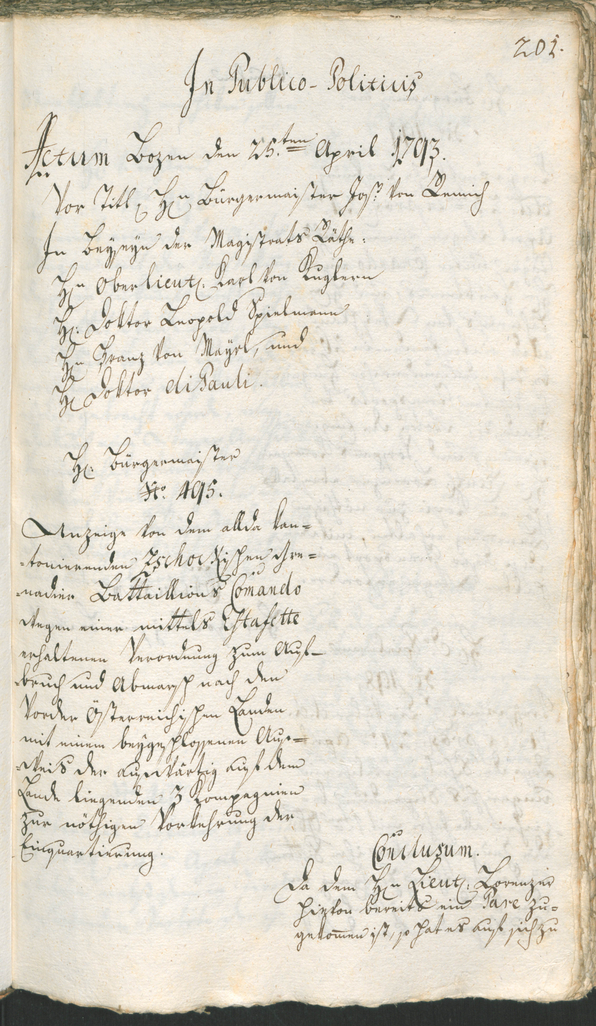 201.
In Publico-Politicis
Actum Bozen den 25.ten April 1793.
Vor Titl Hn Bürgermaister Jos: von Remich
In Beyseyn der Magistrats Räthe:
Hn Oberlieut: Karl von Kuglern
H: Doktor Leopold Spielmann
Hn Franz von Mayrl, und
H: Doktor di Pauli.
H: Bürgermaister
No. 495.
Anzeige von dem allda kan-
tonierenden Zschockischen Gre-
nadier Battaillions Comando
wegen einer mittels Estafette
erhaltenen Verordnung zum Auf-
bruch und Abmarsch nach den
Vorder Österreichischen Landen
mit einem beygeschlossenen Aus-
weis der auswärtig auf dem
Lande liegenden 3 Kompagnien
zur nöthigen Vorkehrung der
Einquartierung.
Conclusum.
Da dem Hn Lieut: Lorenzer
hievon bereits ein Pare zu-
gekommen ist, so hat es auf sich zu